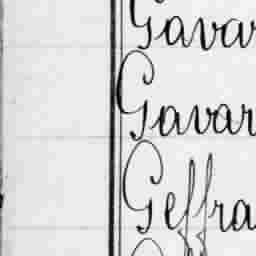 Gavar
Gavar
Geffra